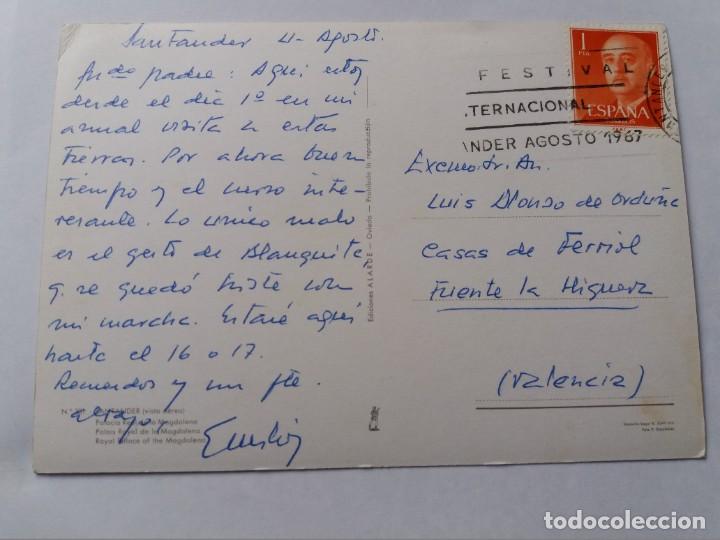 Santander 4-Agosto.
padre: Aquí estoy
desde el día 1º en mi
anual visita a estas
tierras. Por ahora buen
tiempo y el curso inte-
resante. Lo único malo
es el gesto de Blanquita,
q. se quedó triste con
mi marcha. Estaré aquí
hasta el 16 o 17.
Recuerdos y un fte.
abrazo,
Emilio
SANTANDER (vista aérea)
Palacio Real de la Magdalena
Palais Royal de la Magdalena
Royal Palace of the Magdalena
Ediciones ALARDE — Oviedo — Prohibida la reproducción
1
PTA
ESPAÑA
FESTIVAL
TERNACIONAL
NDER AGOSTO 1967
Excmo. Sr. Dn.
Luis Alonso de Orduña
Casas de Ferriol
Fuente la Higuera
(Valencia)
todocoleccion
todocoleccion.net